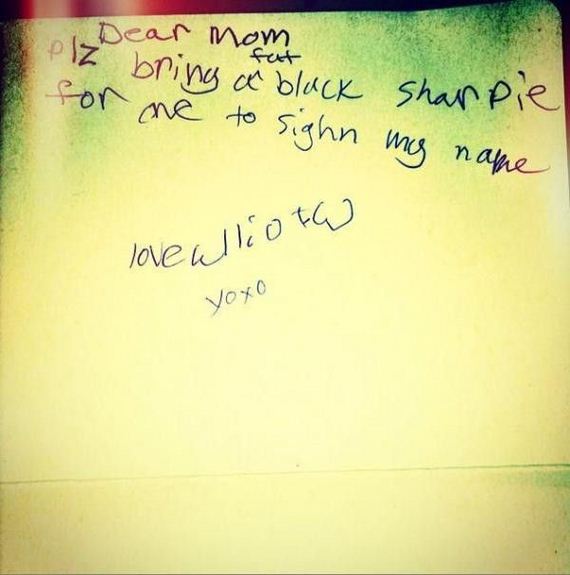 Dear Mom
plz bring a fat black sharpie
for me to sighn my name
love wlliotw
yoxo